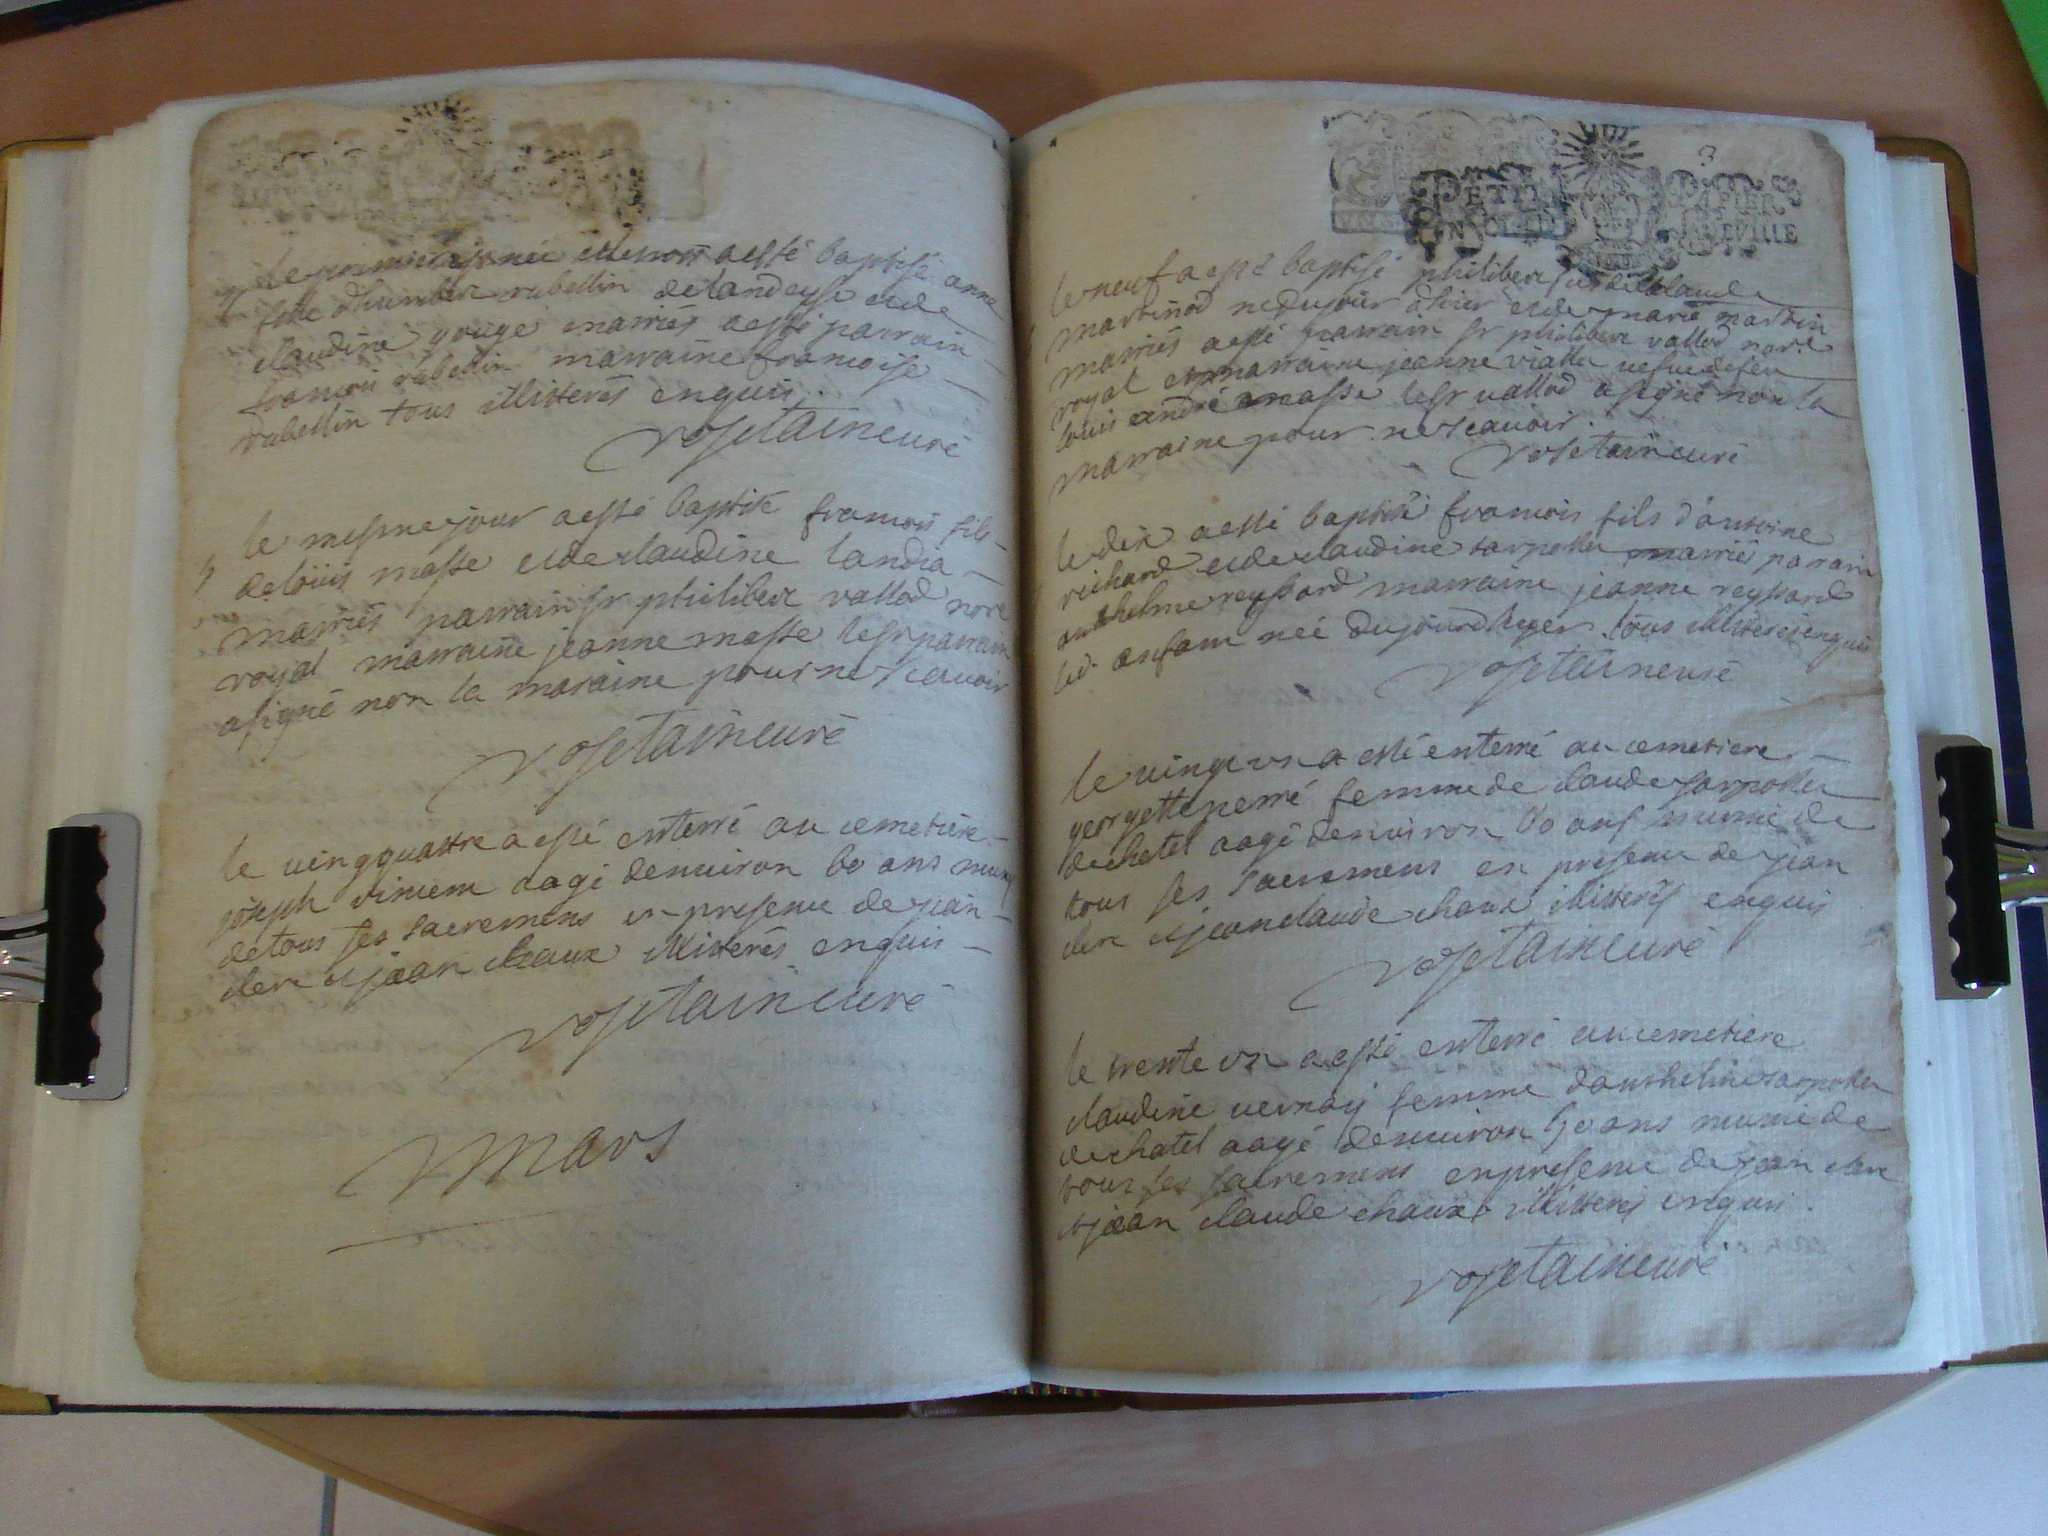 le premier née a esté baptisé anne
fille d'humber rubellin de landeyse et de
claudine gouge marriés a esté parrain
francois rubellin marraine francoise
rubellin tous illitterés enquis
vosetain curé
le mesme jour a esté baptisé francois fils
de loüis masse et de claudine landra
marriés parrain sr philiber vallod nore
royal marraine jeanne masse le sr parrain
a signé non la maraine pour ne scavoir
vosetain curé
le vingquattre a esté enterré au cemetiere
joseph vincem aagé denuiron 60 ans muny
de tous ses sacremens en presence de jean
clerc et jean chaux illitterés enquis
vosetain curé
mars
3
PETIT PAPIER
le neuf a esté baptisé philiber fils de claude
martinod né du jour d'hier et de marie martin
marriés a esté parrain sr philiber vallod nore
royal et marraine jeanne vialla vefue de feu
louis andré masse le sr vallod a signé non la
marraine pour ne scauoir
vosetain curé
le dix a esté baptisé francois fils d'antoine
richard et de claudine sarpollet marriés parrain
anthelme reyssard marraine jeanne reyssard
led. enfam née du jourd'heyer tous illitterés enquis
vosetain curé
le vingt vn a esté enterré au cemetiere
georgette perré femme de claude sarpollet
de chatel aagé denuiron 60 ans munie de
tous ses sacremens en presence de jean
clerc et jean claude chaux illitterés enquis
vosetain curé
le trente vn a esté enterré au cemetiere
claudine vernay femme d'anthelme sarpollet
de chatel aagé denuiron 50 ans munie de
tous ses sacremens en presence de jean clerc
et jean claude chaux illitterés enquis
vosetain curé